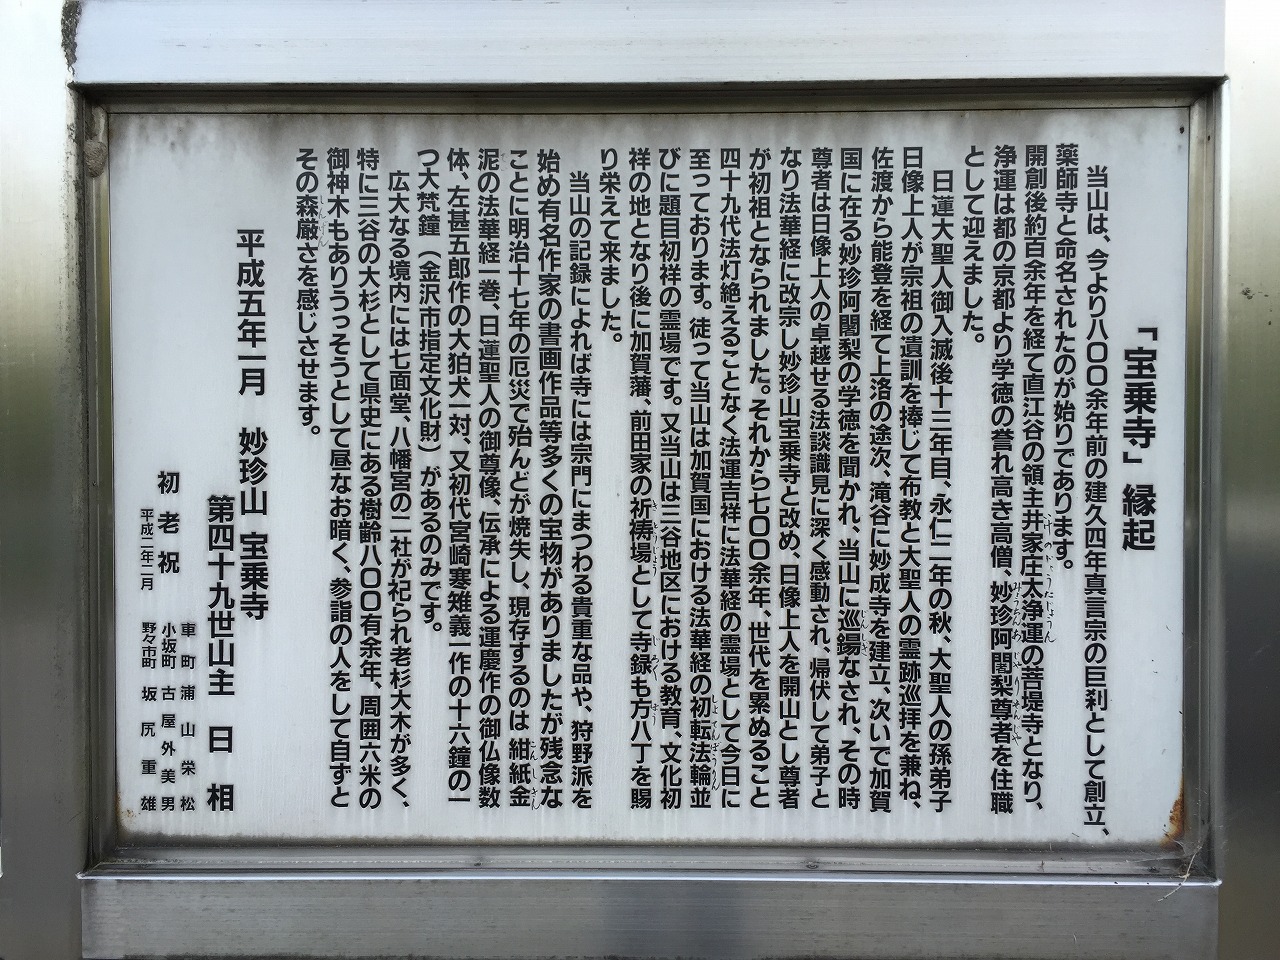 「宝乗寺」縁起
当山は、今より八〇〇余年前の建久四年真言宗の巨刹として創立、
薬師寺と命名されたのが始りであります。
開創後約百余年を経て直江谷の領主井家庄太浄運の菩堤寺となり、
浄運は都の京都より学徳の誉れ高き高僧、妙珍阿闍梨尊者を住職
として迎えました。
日蓮大聖人御入滅後十三年目、永仁二年の秋、大聖人の孫弟子
日像上人が宗祖の遺訓を捧じて布教と大聖人の霊跡巡拝を兼ね、
佐渡から能登を経て上洛の途次、滝谷に妙成寺を建立、次いで加賀
国に在る妙珍阿闍梨の学徳を聞かれ、当山に巡錫なされ、その時
尊者は日像上人の卓越せる法談識見に深く感動され、帰伏して弟子と
なり法華経に改宗し妙珍山宝乗寺と改め、日像上人を開山とし尊者
が初祖となられました。それから七〇〇余年、世代を累ぬること
四十九代法灯絶えることなく法運吉祥に法華経の霊場として今日に
至っております。徒って当山は加賀国における法華経の初転法輪並
びに題目初祥の霊場です。又当山は三谷地区における教育、文化初
祥の地となり後に加賀藩、前田家の祈祷場として寺録も方八丁を賜
り栄えて来ました。
当山の記録によれば寺には宗門にまつわる貴重な品や、狩野派を
始め有名作家の書画作品等多くの宝物がありましたが残念な
ことに明治十七年の厄災で殆んどが焼失し、現存するのは紺紙金
泥の法華経一巻、日蓮聖人の御尊像、伝承による運慶作の御仏像数
体、左甚五郎作の大狛犬一対、又初代宮崎寒雉義一作の十六鐘の一
つ大梵鐘（金沢市指定文化財）があるのみです。
広大なる境内には七面堂、八幡宮の二社が祀られ老杉大木が多く、
特に三谷の大杉として県史にある樹齢八〇〇有余年、周囲六米の
御神木もありうっそうとして昼なお暗く、参詣の人をして自ずと
その森厳さを感じさせます。
平成五年一月 妙珍山 宝乗寺
第四十九世山主 日相
初老祝
平成二年二月
車町 浦山栄松
小坂町 古屋外美男
野々市町 坂尻重雄